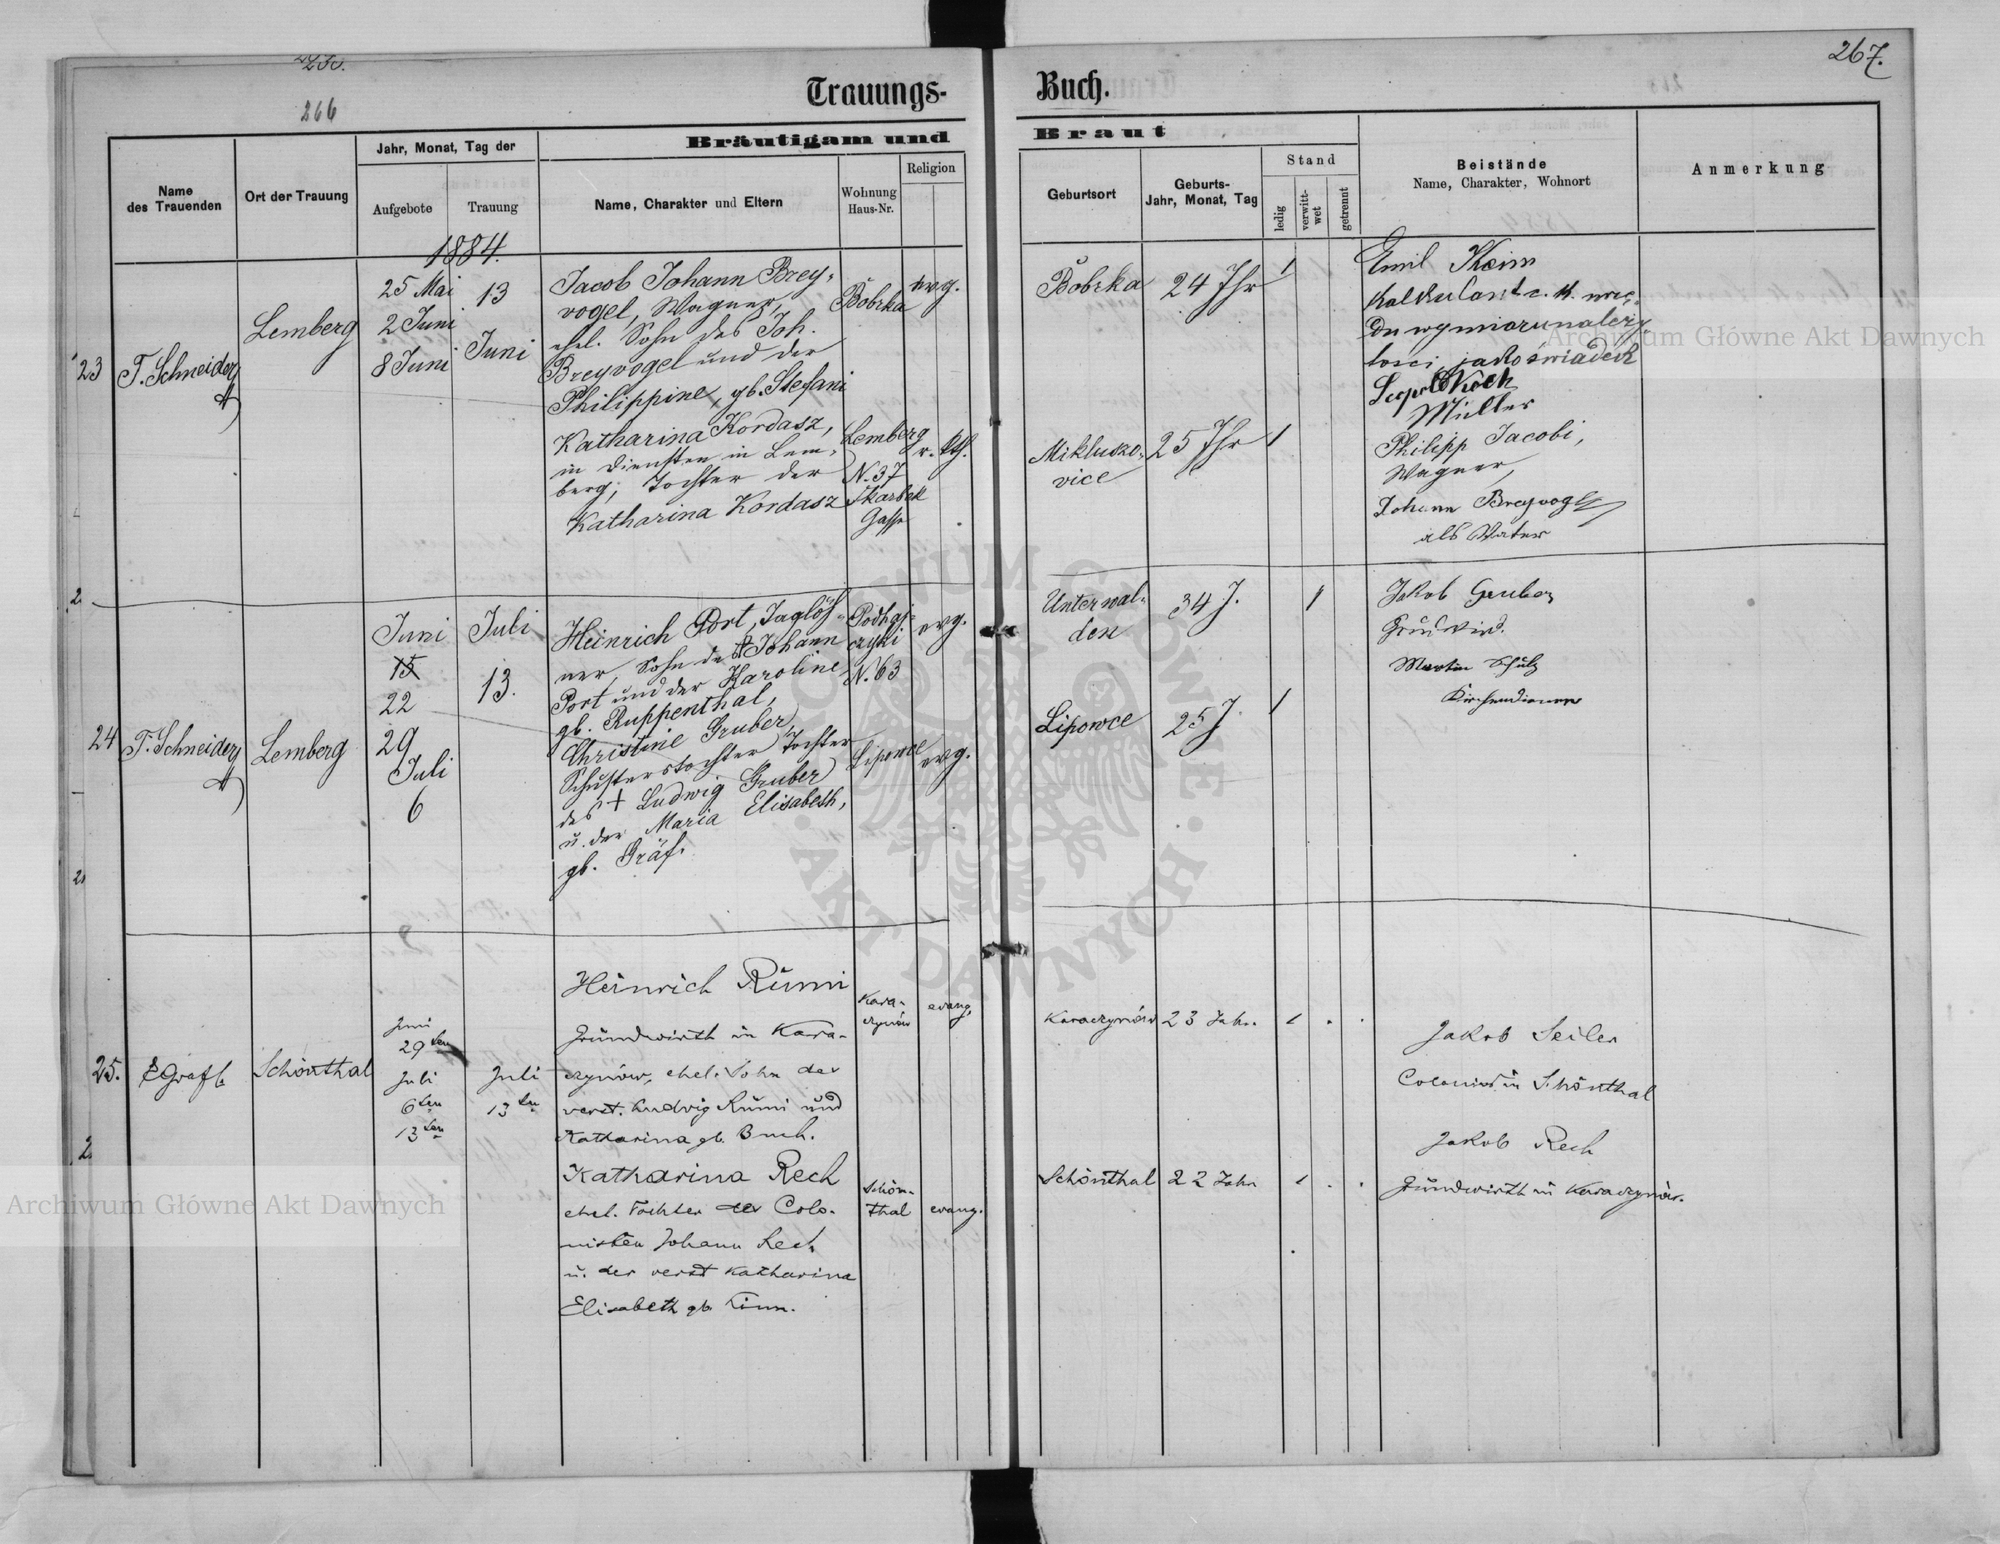 266
267.
Trauungs-Buch.
Bräutigam und Braut
Name
des Trauenden
Ort der Trauung
Jahr, Monat, Tag der
Aufgebote
Trauung
Name, Charakter und Eltern
Wohnung
Haus-Nr.
Religion
Geburtsort
Geburts-
Jahr, Monat, Tag
Stand
ledig
verwitt-
wet
getrennt
Beistände
Name, Charakter, Wohnort
Anmerkung
1884.
23
T. Schneider
Lemberg
25 Mai
2 Juni
8 Juni
13
Juni
Jacob Johann Brey-
vogel, Wagner,
ehel. Sohn des Joh.
Breyvogel und der
Philippine, gb. Stefani
Bóbrka
evg.
Bóbrka
24 Jhr
1
Katharina Kordasz,
in Diensten in Lem-
berg, Tochter der
Katharina Kordasz
Lemberg
N. 37
Skarbek
Gasse
r. kth.
Mikluszo-
vice
25 Jhr
1
Emil Keim
Kalkulant c. k. urzę-
du wymiaru należy
tości jako świadek
Leopold Koch
Müller
Philipp Jacobi,
Wagner,
Johann Breyvogel
als Vater
24
T. Schneider
Lemberg
Juni
15
22
29
Juli
6
Juli
13.
Heinrich Port, Taglöh-
ner, Sohn des Johann
Port und der Karoline,
gb. Ruppenthal,
Podhaj-
czyki
N. 63
evg.
Unterwal-
den
34 J.
1
Christine Gruber
Schusterstochter Tochter
des + Ludwig Gruber
u. der Maria Elisabeth,
gb. Gräf.
Lipowce
evg.
Lipowce
25 J.
1
Jakob Gruber
Grundwird.
Martin Schulz
Kirchendiener
25.
E Grafl
Schönthal
Juni
29ten
Juli
6ten
13ten
Juli
13ten
Heinrich Rümi
Grundwirth in Kara-
czynów, ehel. Sohn der
verst. Ludwig Rümi und
Katharina gb. Buch.
Kara-
czynów
evang.
Karaczynów
23 Jahr.
Katharina Rech
ehel. Tochter der Colo-
nisten Johann Rech
u. der verst Katharina
Elisabeth gb. Zinn.
Schön-
thal
evang.
Schönthal
22 Jahr
Jakob Seiler
Colonist in Schönthal
Jakob Rech
Grundwirth in Karaczynów.
Archiwum Główne Akt Dawnych
Archiwum Główne Akt Dawnych
ARCHIWUM GŁÓWNE · AKT DAWNYCH ·